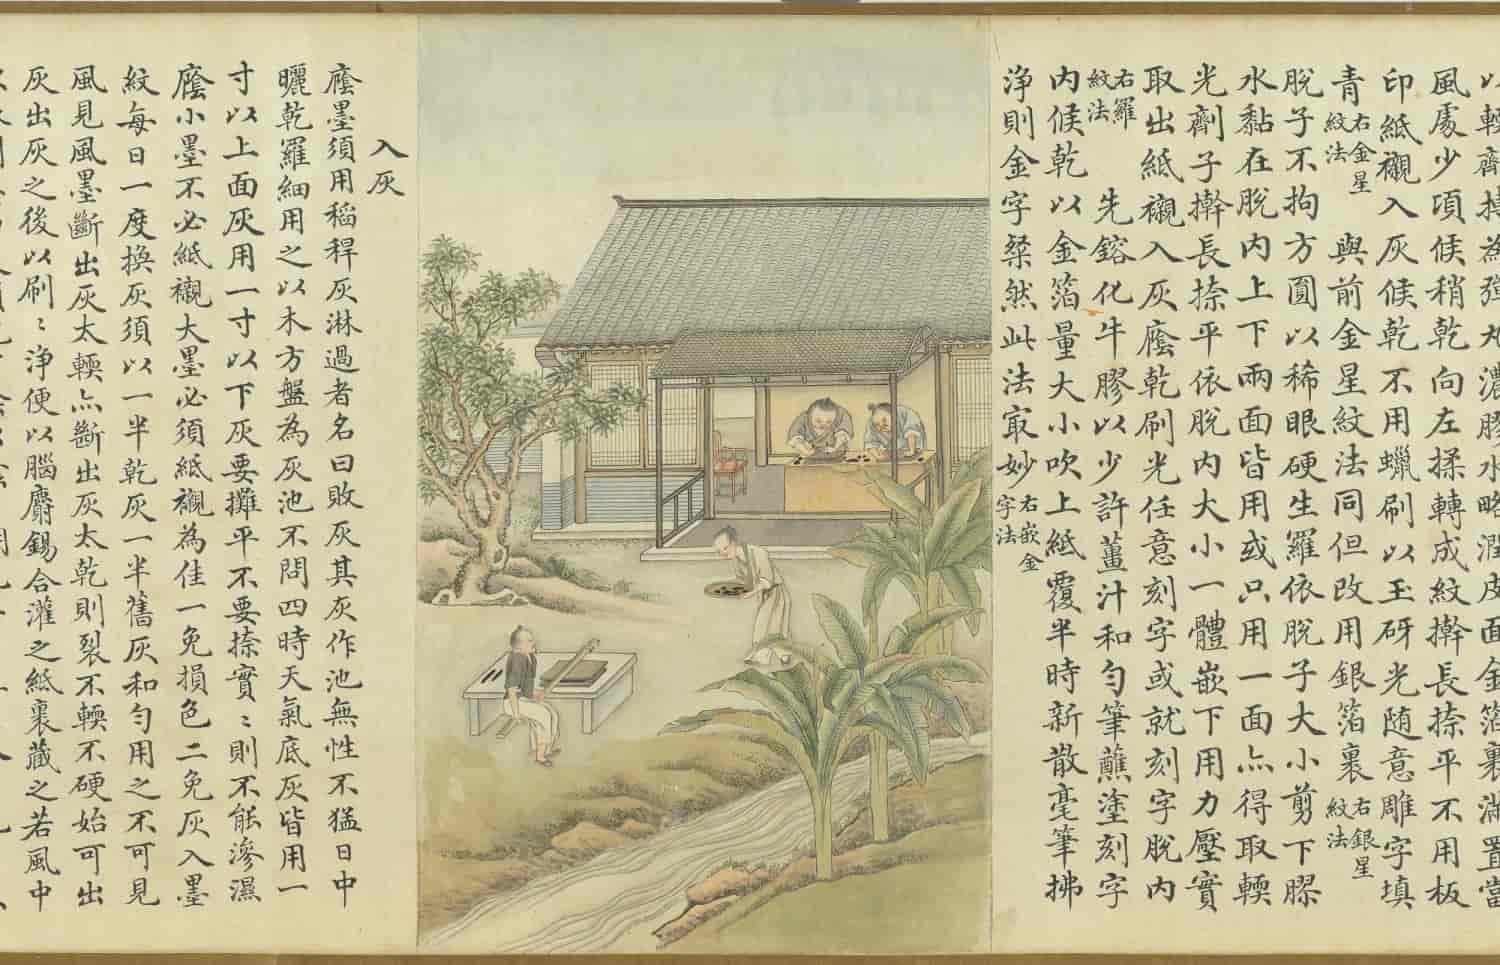 以輭劑摶為彈丸濃膠水略潤皮面金箔裹滿置當
風處少項候稍乾向左揉轉成紋擀長捺平不用板
印紙襯入灰候乾不用蠟刷以玉砑光随意雕字填
青右金星紋法 與前金星紋法同但改用銀箔裹右銀星紋法
脫子不拘方圓以稀眼硬生羅依脫子大小剪下膠
水黏在脫内上下兩面皆用或只用一面亦得取輭
光劑子擀長捺平依脫内大小一體嵌下用力壓實
取出紙襯入灰廕乾刷光任意刻字或就刻字脫内
右羅紋法 先鎔化牛膠以少許薑汁和勻筆蘸塗刻字
内候乾以金箔量大小吹上紙覆半時新散毫筆拂
淨則金字粲然此法㝡妙右嵌金字法
入灰
廕墨須用稻稈灰淋過者名曰敗灰其灰作池無性不猛日中
曬乾羅細用之以木方盤為灰池不問四時天氣底灰皆用一
寸以上面灰用一寸以下灰要攤平不要捺實〻則不能滲濕
廕小墨不必紙襯大墨必須紙襯為佳一免損色二免灰入墨
紋每日一度換灰須以一半乾灰一半舊灰和勻用之不可見
風見風墨斷出灰太輭亦斷出灰太乾則裂不輭不硬始可出
灰出灰之後以刷〻淨便以腦麝錫合灌之紙裹藏之若風中